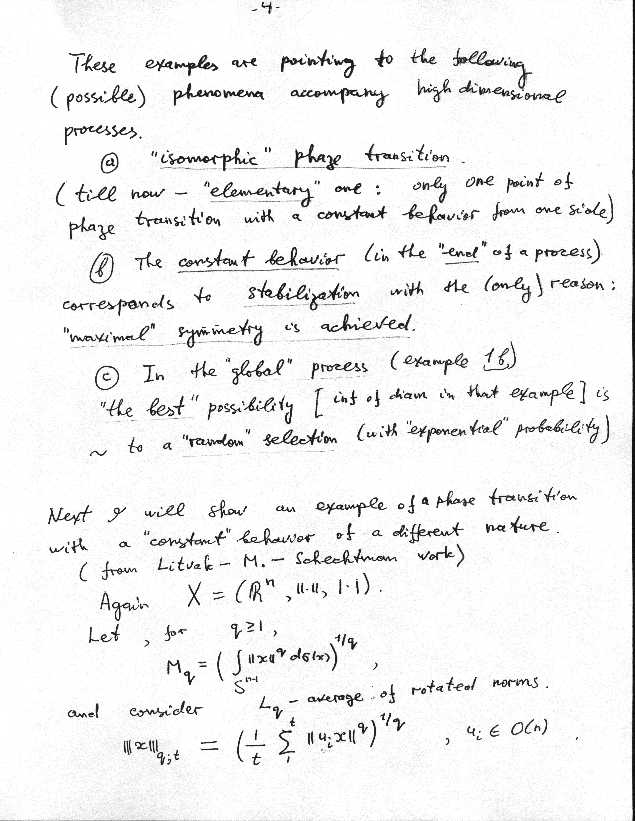 -4-
These examples are pointing to the following
(possible) phenomena accompany high dimensional
processes.
ⓐ "isomorphic" phaze transition.
(till now – "elementary" one: only one point of
phaze transition with a constant behavior from one side)
ⓑ The constant behavior (in the "end" of a process)
corresponds to stabilization with the (only) reason:
"maximal" symmetry is achieved.
ⓒ In the "global" process (example 1b)
"the best" possibility [inf of diam in that example] is
~ to a "random" selection (with "exponential" probability)
Next I will show an example of a phase transition
with a "constant" behavior of a different nature.
(from Litvak – M. – Schechtman work)
Again X = (ℝⁿ, ‖·‖, |·|).
Let, for q ≥ 1,
M_q = (∫_{S^{n-1}} ‖x‖^q dσ(x))^{1/q},
and consider L_q – average of rotated norms.
|||x|||_{q;t} = (1/t ∑_1^t ‖u_i x‖^q)^{1/q}, u_i ∈ O(n).